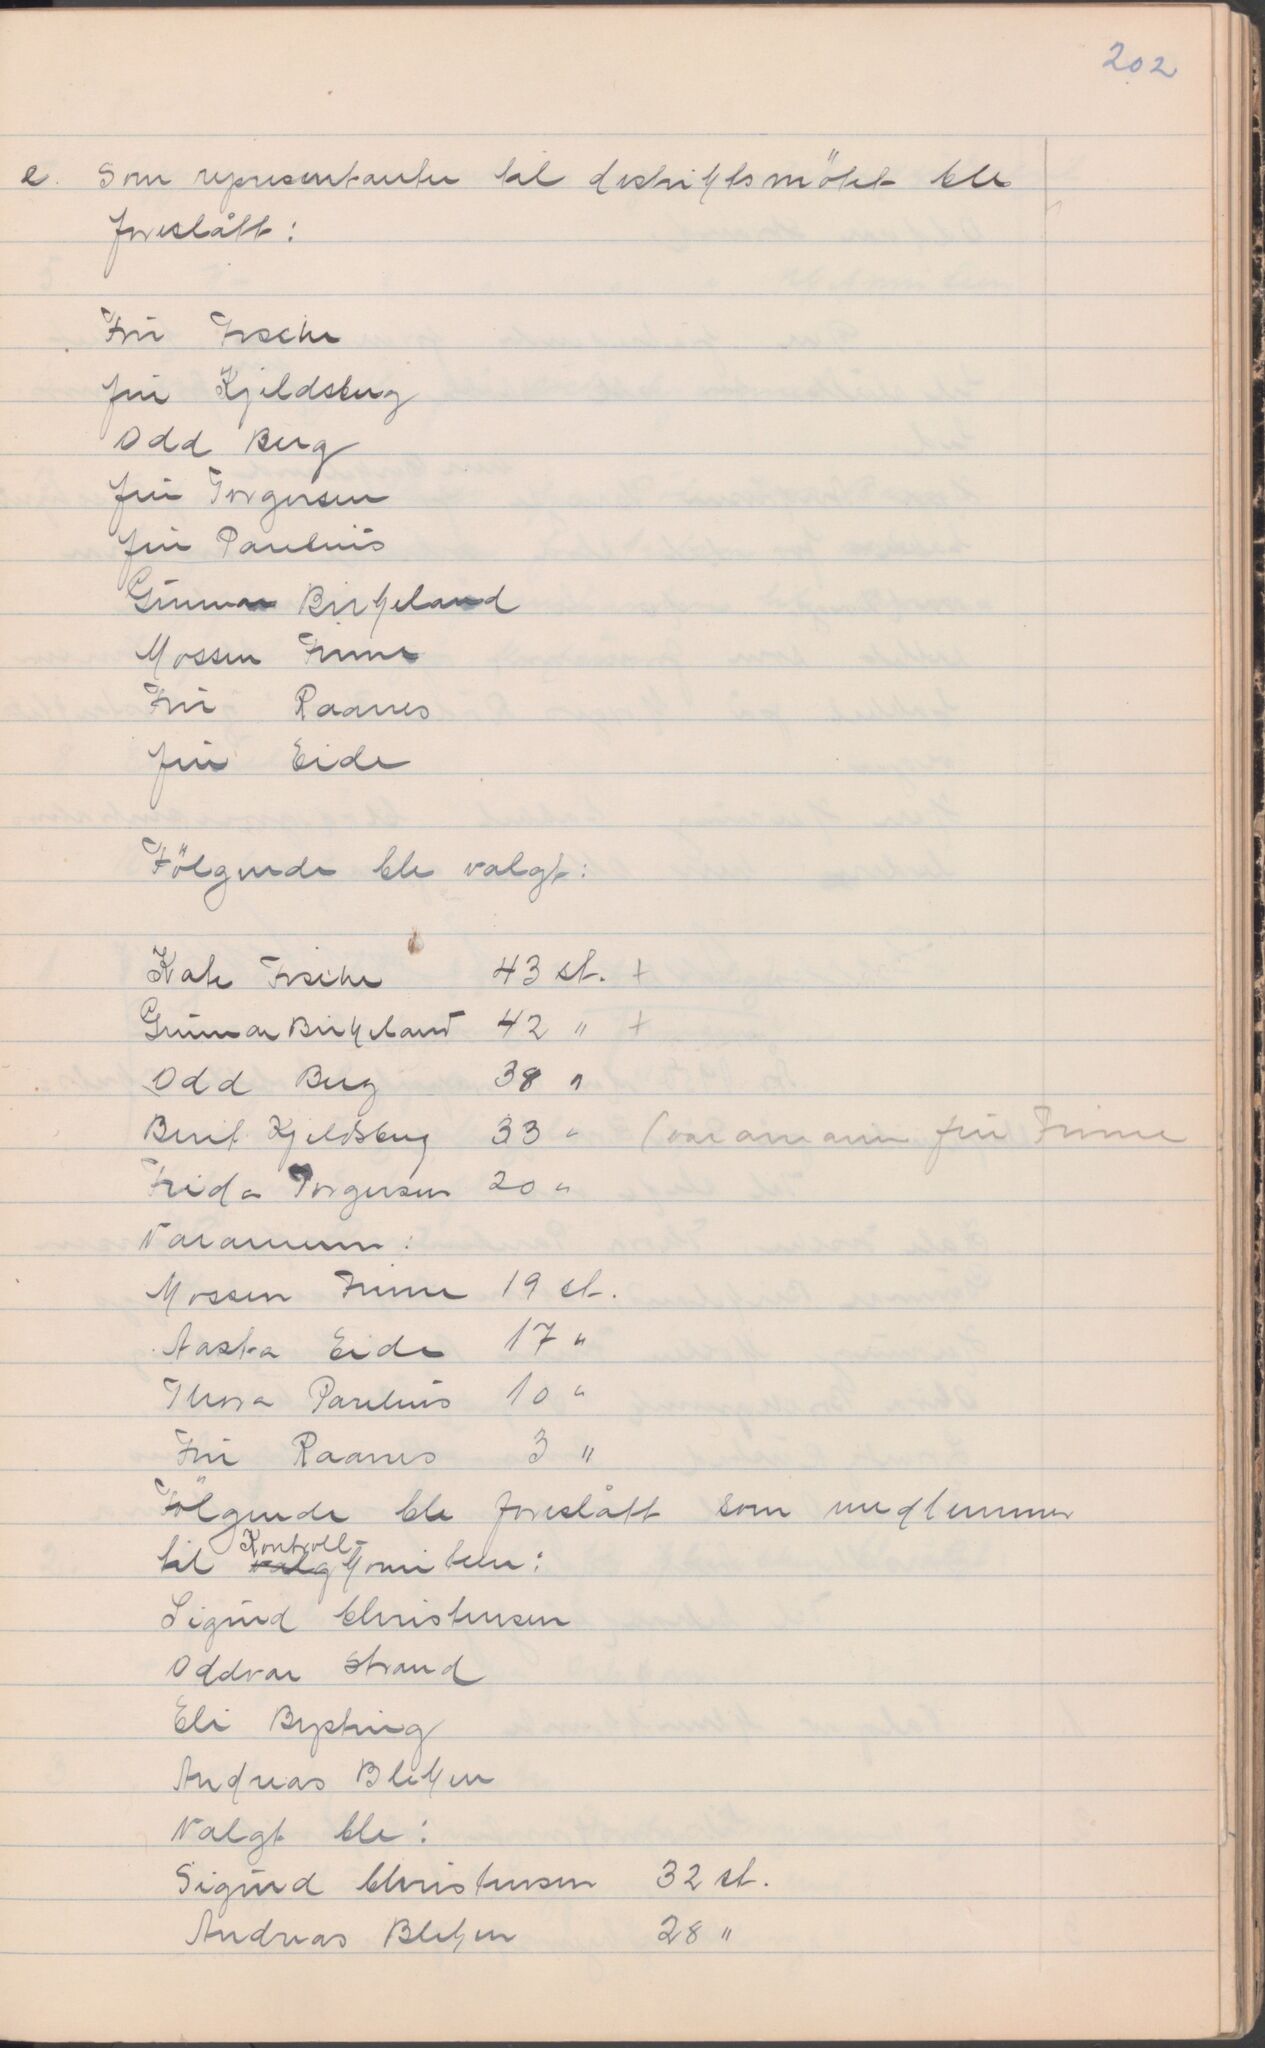 202
e. Som representanter til distriktsmötet ble
foreslått:
Fru Fische
fru Kjeldsberg
Odd Berg
fru Torgersen
fru Paulius
Gunnar Birkeland
Mossen Finne
Fru Raanes
fru Eide
Fölgende ble valgt:
Kate Fische 43 st. +
Gunnar Birkeland 42 " +
Odd Berg 38 "
Berit Kjeldsberg 33 " (varamann fru Finne
Frida Torgersen 20 "
Varamenn:
Mossen Finne 19 st.
Aasta Eide 17 "
Thora Paulius 10 "
Fru Raanes 3 "
Fölgende ble foreslått som medlemmer
til Kontroll- valgkomiteen:
Sigurd Christensen
Oddvar Strand
Eli Bysting
Andreas Blekken
Valgt ble:
Sigurd Christensen 32 st.
Andreas Blekken 28 "